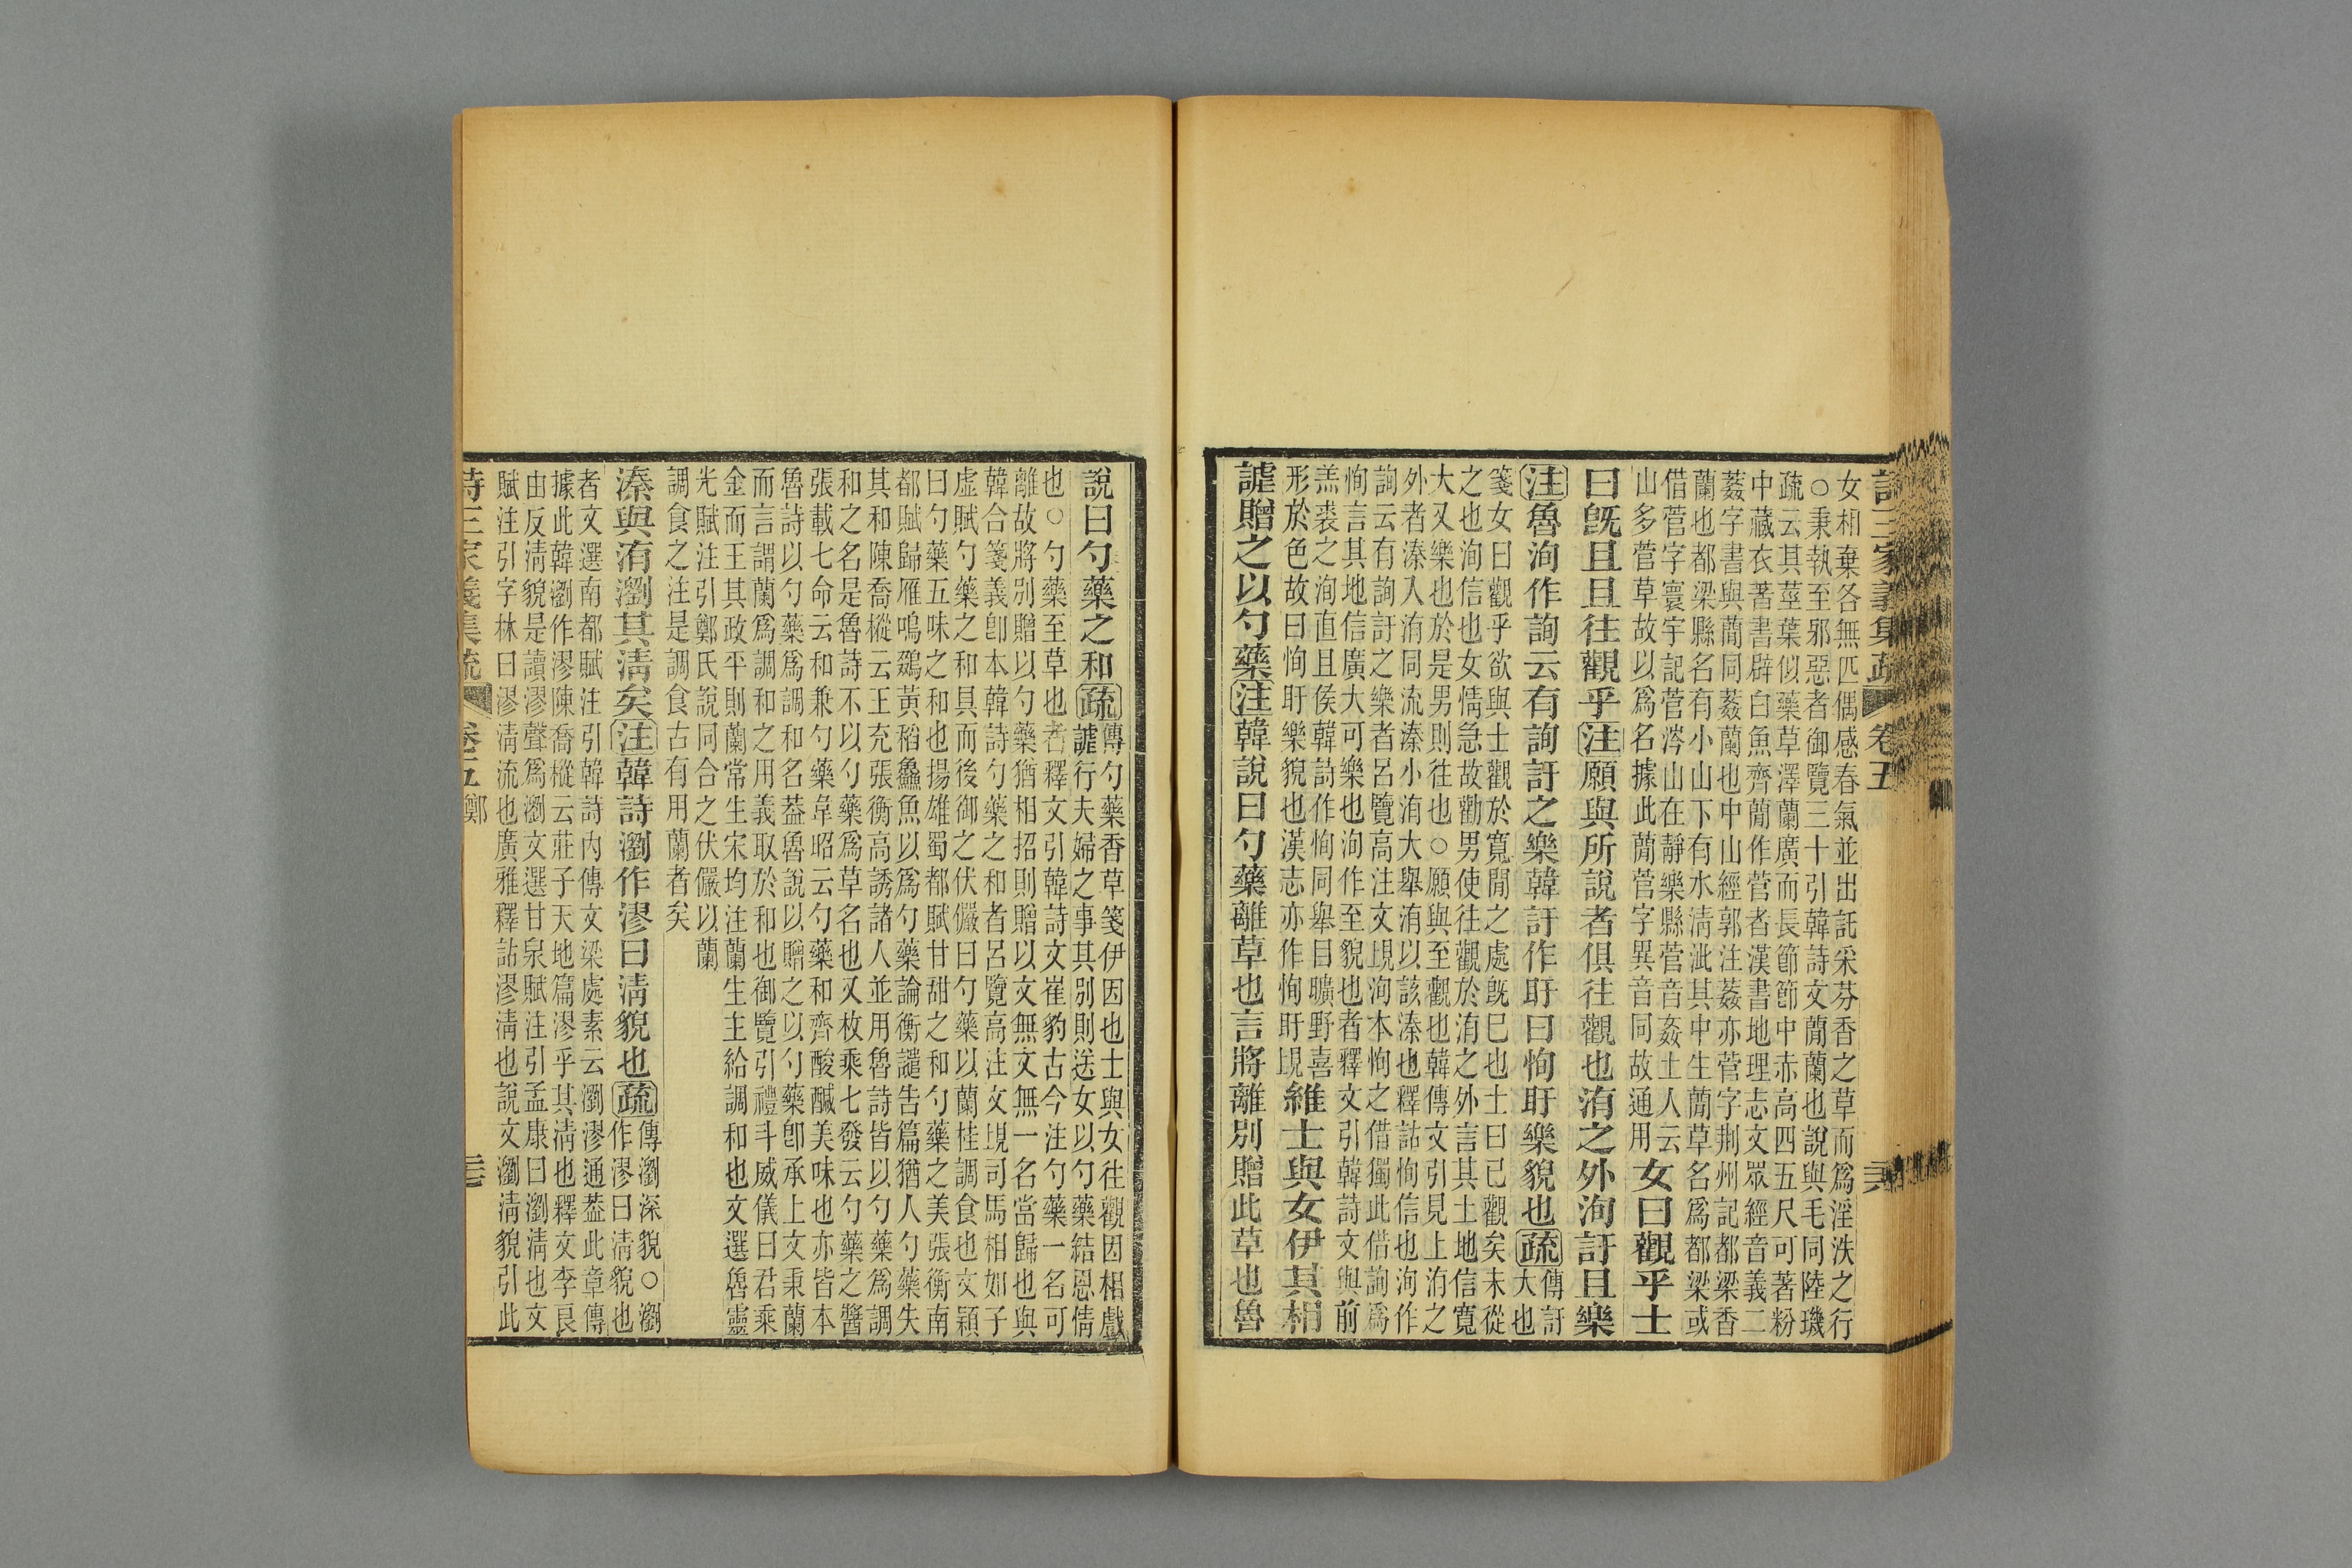 詩三家義集疏 卷五
女相棄各無匹偶感春氣並出託采芬香之草而爲淫泆之行
○秉執至邪惡者御覽三十引韓詩文蕑蘭也說與毛同陸璣
疏云其莖葉似藥草澤蘭廣而長節節中赤高四五尺可著粉
中藏衣著書辟白魚齊蕑作菅者漢書地理志文眾經音義二
葌字書與蕑同葌蘭也中山經郭注葌亦菅字荆州記都梁香
蘭也都梁縣名有小山下有水清泚其中生蕑草名爲都梁或
借菅字寰宇記菅涔山在靜樂縣菅音姦土人云
山多菅草故以爲名據此蕑菅字異音同故通用女曰觀乎士
曰旣且且往觀乎注願與所說者俱往觀也洧之外洵訏且樂
注魯洵作詢云有詢訏之樂韓訏作盱曰恂盱樂貌也疏傳訏大也
箋女曰觀乎欲與士觀於寬閒之處旣已也士曰已觀矣未從
之也洵信也女情急故勸男使往觀於洧之外言其土地信寬
大又樂也於是男則往也○願與至觀也韓傳文引見上洧之
外者溱入洧同流溱小洧大舉洧以該溱也釋詁恂信也洵作
詢云有詢訏之樂者呂覽高注文見洵本恂之借獨此借詢爲
恂言其地信廣大可樂也洵作至貌也者釋文引韓詩文與前
羔裘之洵直且侯韓詩作恂同舉目曠野喜
形於色故曰恂盱樂貌也漢志亦作恂盱見維士與女伊其相
謔贈之以勺藥注韓說曰勺藥離草也言將離別贈此草也魯
說曰勺藥之和疏傳勺藥香草箋伊因也士與女往觀因相戲
謔行夫婦之事其別則送女以勺藥結恩情
也○勺藥至草也者釋文引韓詩文崔豹古今注勺藥一名可
離故將別贈以勺藥猶相招則贈以文無文無一名當歸也與
韓合箋義卽本韓詩勺藥之和者呂覽高注文見司馬相如子
虛賦勺藥之和具而後御之伏儼曰勺藥以蘭桂調食也文穎
曰勺藥五味之和也揚雄蜀都賦甘甜之和勺藥之美張衡南
都賦歸雁鳴鵽黃稻鱻魚以爲勺藥論衡譴告篇猶人勺藥失
其和陳喬樅云王充張衡高誘諸人並用魯詩皆以勺藥爲調
和之名是魯詩不以勺藥爲草名也又枚乘七發云勺藥之醬
張載七命云和兼勺藥韋昭云勺藥和齊酸鹹美味也亦皆本
魯詩以勺藥爲調和名葢魯說以贈之以勺藥卽承上文秉蘭
而言謂蘭爲調和之用義取於和也御覽引禮斗威儀曰君乘
金而王其政平則蘭常生宋均注蘭生主給調和也文選魯靈
光賦注引鄭氏說同合之伏儼以蘭
調食之注是調食古有用蘭者矣
溱與洧瀏其清矣注韓詩瀏作漻曰清貌也疏傳瀏深貌○瀏作漻曰清貌也
者文選南都賦注引韓詩內傳文梁處素云瀏漻通葢此章傳
據此韓瀏作漻陳喬樅云莊子天地篇漻乎其清也釋文李良
由反清貌是讀漻聲爲瀏文選甘泉賦注引孟康曰瀏清也文
賦注引字林曰漻清流也廣雅釋詁漻清也說文瀏清貌引此
詩三家義集疏 卷五 鄭